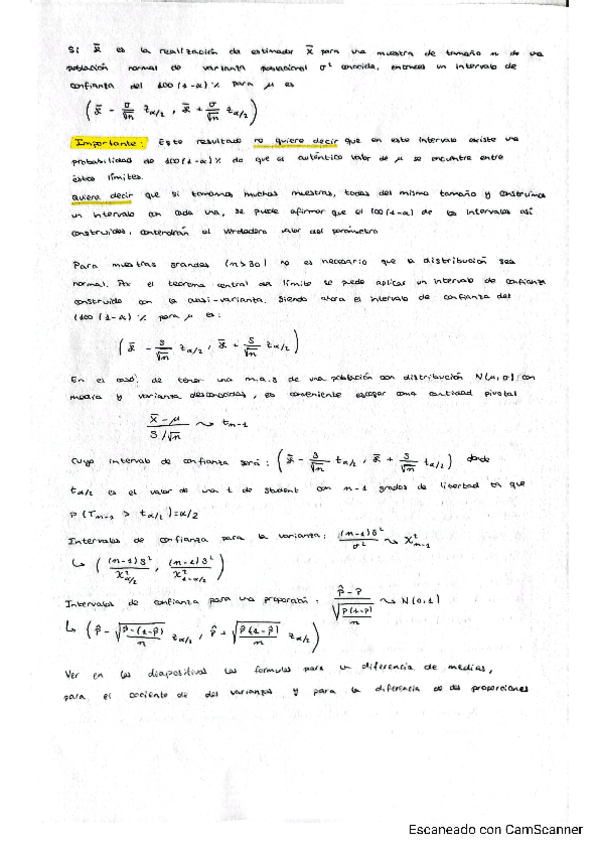 Si x̄ es la realización de estimador X̄ para una muestra de tamaño n de una
población normal de varianza poblacional σ² conocida, entonces un intervalo de
confianza del 100(1-α)% para μ es
(x̄ - σ/√n z_{α/2}, x̄ + σ/√n z_{α/2})
Importante: Este resultado no quiere decir que en este intervalo existe una
probabilidad de 100(1-α)%, de que el auténtico valor de μ se encuentre entre
estos límites.
Quiere decir que si tomamos muchas muestras, todas del mismo tamaño y construimos
un intervalo con cada una, se puede afirmar que el 100(1-α) de los intervalos así
construidos, contendrán al verdadero valor del parámetro
Para muestras grandes (n>30) no es necesario que la distribución sea
normal. Por el teorema central del límite se puede aplicar un intervalo de confianza
construido con la cuasi-varianza. Siendo ahora el intervalo de confianza del
(100(1-α)% para μ es:
(x̄ - s/√n z_{α/2}, x̄ + s/√n z_{α/2})
En el caso de tener una m.a.s de una población con distribución N(μ,σ) con
media y varianza desconocidas, es conveniente escoger como cantidad pivotal
X̄-μ / S/√n ⇝ t_{n-1}
Cuyo intervalo de confianza será: (x̄ - s/√n t_{α/2}, x̄ + s/√n t_{α/2}) donde
t_{α/2} es el valor de una t de student con n-1 grados de libertad en que
P(T_{n-1} > t_{α/2})=α/2
Intervalos de confianza para la varianza: (n-1)S²/σ² ⇝ χ²_{n-1}
↳ ((n-1)S²/χ²_{α/2}, (n-1)S²/χ²_{1-α/2})
Intervalos de confianza para una proporción: p̂-p / √(p(1-p)/n) ⇝ N(0,1)
↳ (p̂ - √(p̂-(1-p̂)/n) z_{α/2}, p̂ + √(p̂(1-p̂)/n) z_{α/2})
Ver en las diapositivas las formulas para la diferencia de medias,
para el cociente de dos varianzas y para la diferencia de dos proporciones
Escaneado con CamScanner